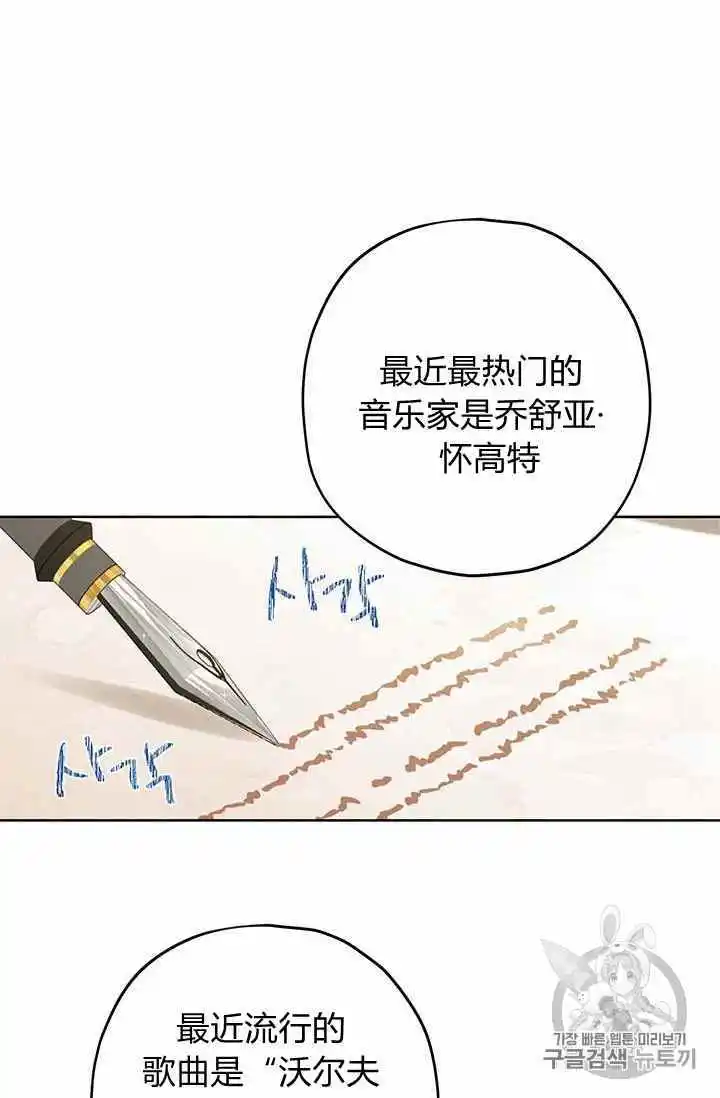 最近最热门的
音乐家是乔舒亚·
怀高特
사각
사각
最近流行的
歌曲是“沃尔夫
가장 빠른 웹툰 미리보기
구글검색 뉴토끼